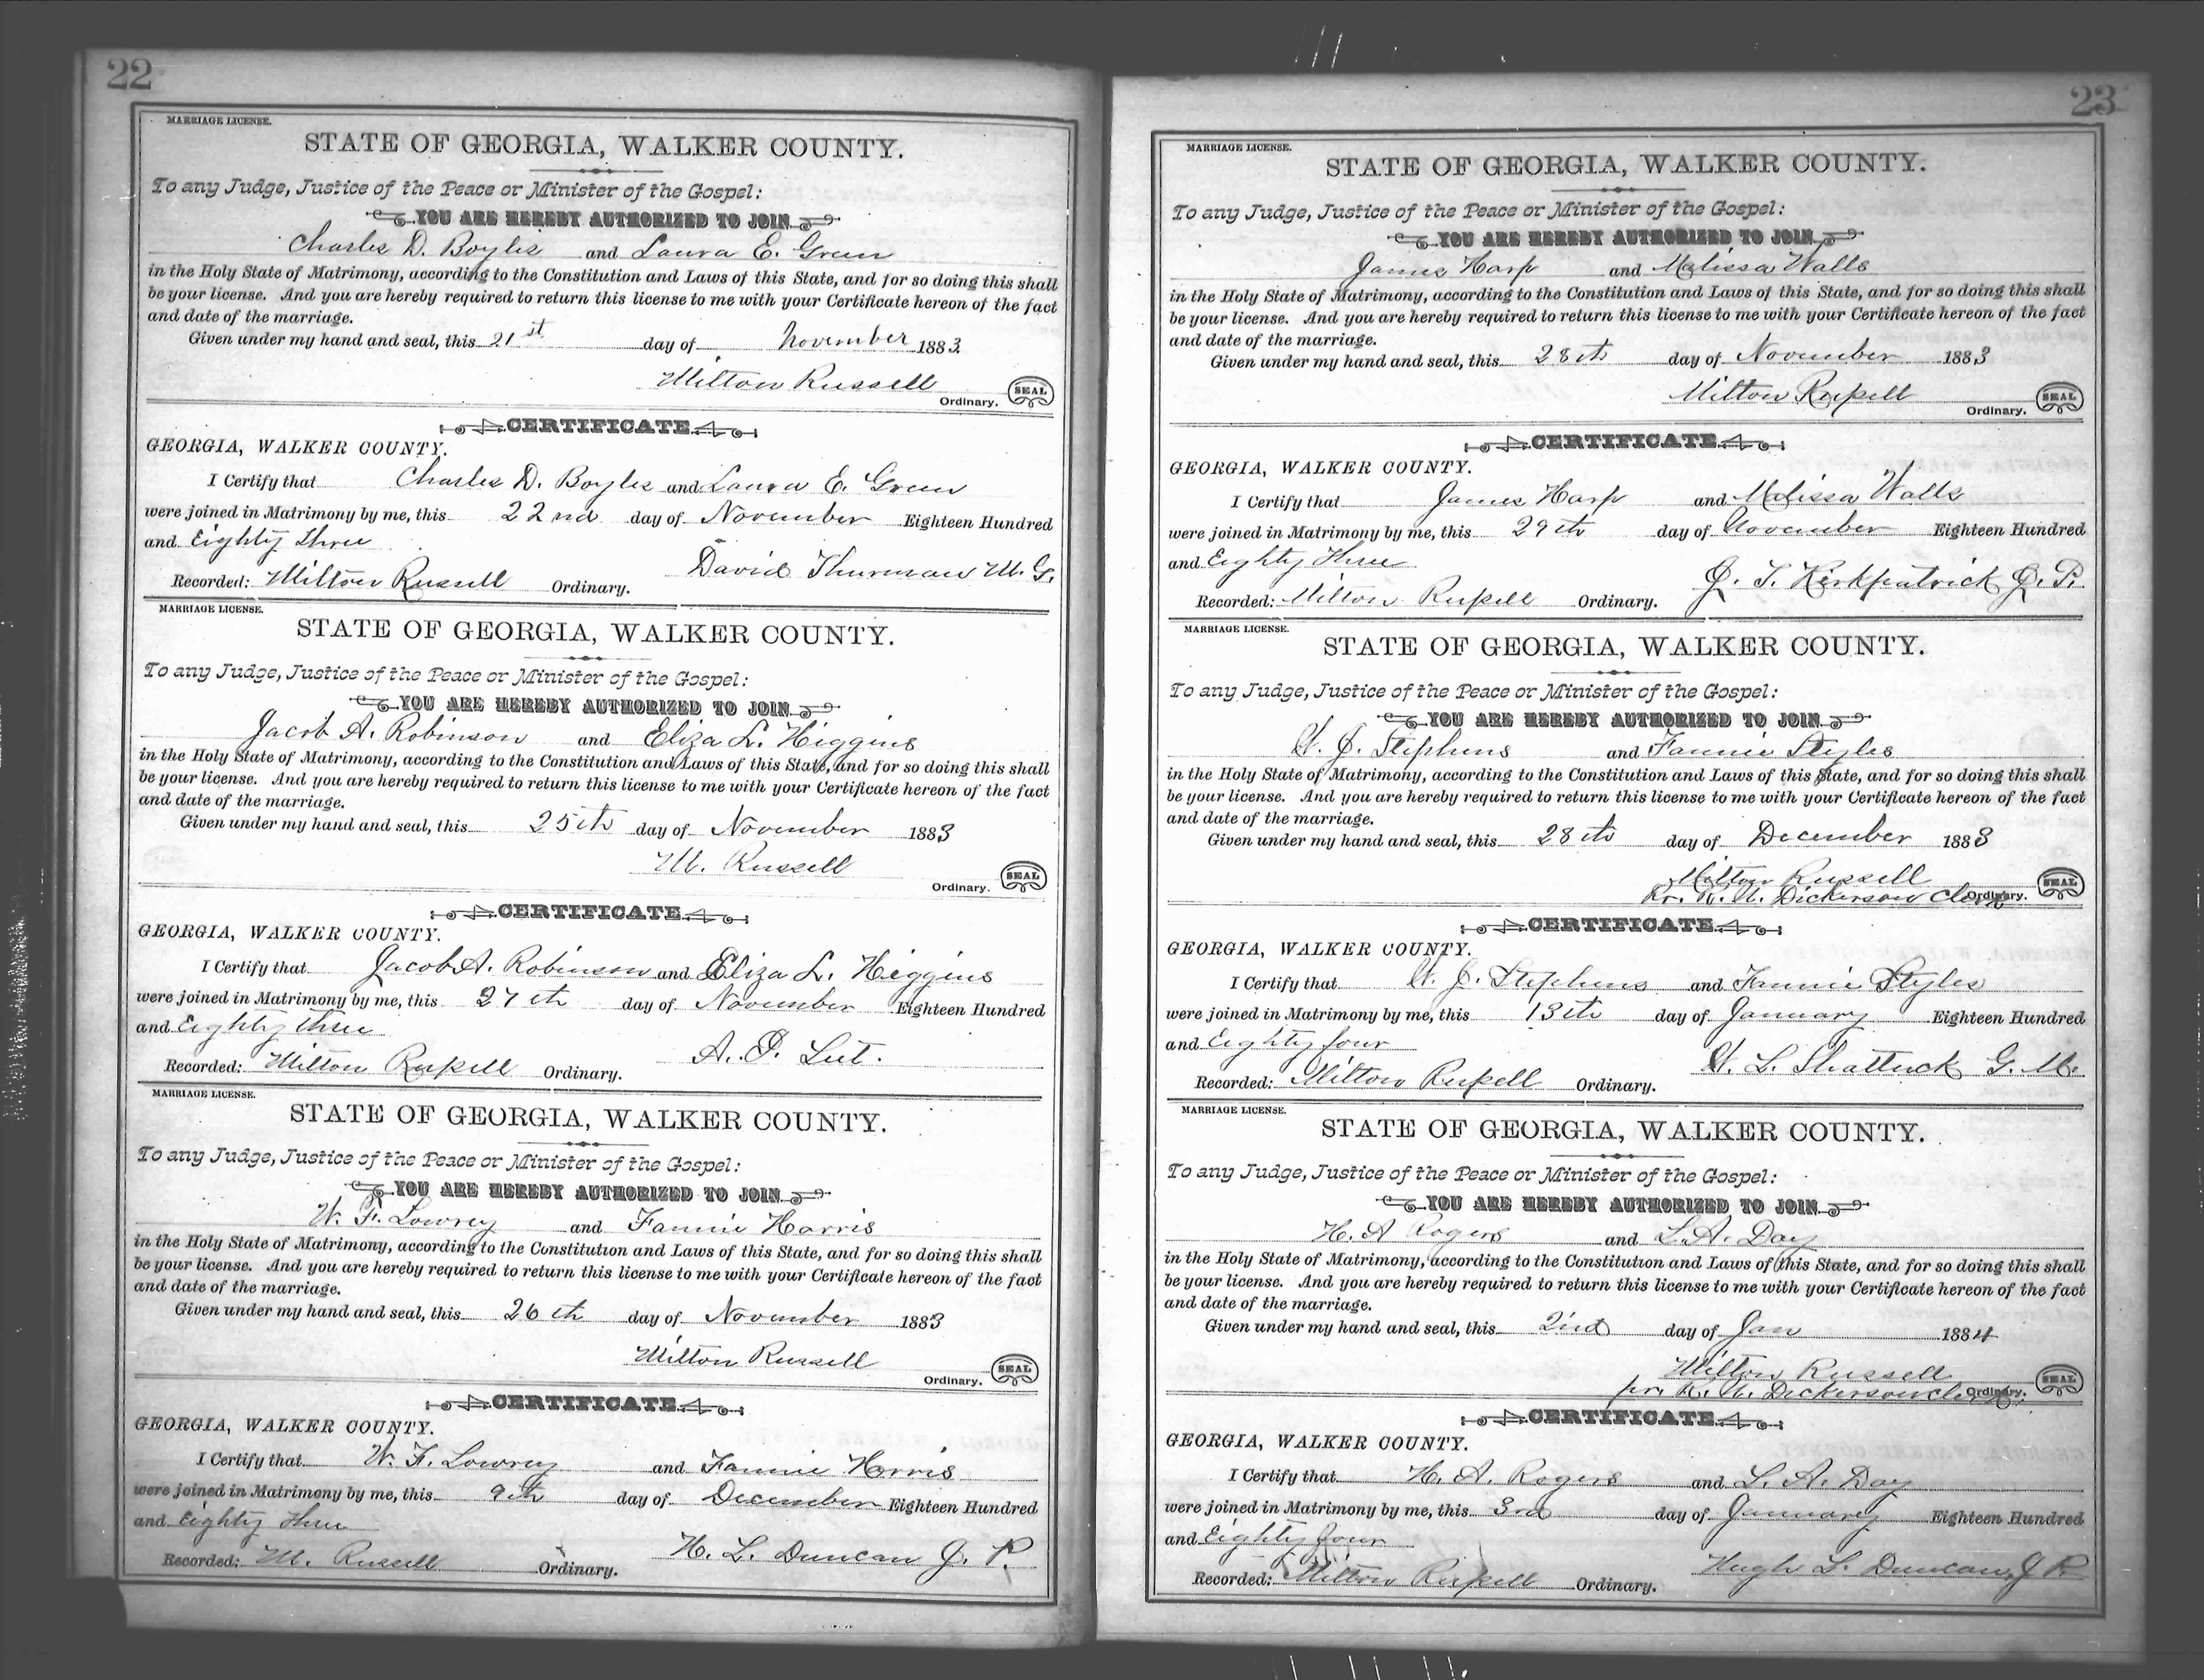 22
MARRIAGE LICENSE.
STATE OF GEORGIA, WALKER COUNTY.
To any Judge, Justice of the Peace or Minister of the Gospel:
YOU ARE HEREBY AUTHORIZED TO JOIN
Charles D. Boyles and Laura E. Green
in the Holy State of Matrimony, according to the Constitution and Laws of this State, and for so doing this shall
be your license. And you are hereby required to return this license to me with your Certificate hereon of the fact
and date of the marriage.
Given under my hand and seal, this 21st day of November 1883
Milton Russell
Ordinary. SEAL
CERTIFICATE
GEORGIA, WALKER COUNTY.
I Certify that Charles D. Boyles and Laura E. Green
were joined in Matrimony by me, this 22nd day of November Eighteen Hundred
and Eighty Three
David Thurman M. G.
Recorded: Milton Russell Ordinary.
MARRIAGE LICENSE.
STATE OF GEORGIA, WALKER COUNTY.
To any Judge, Justice of the Peace or Minister of the Gospel:
YOU ARE HEREBY AUTHORIZED TO JOIN
Jacob A. Robinson and Eliza L. Higgins
in the Holy State of Matrimony, according to the Constitution and Laws of this State, and for so doing this shall
be your license. And you are hereby required to return this license to me with your Certificate hereon of the fact
and date of the marriage.
Given under my hand and seal, this 25th day of November 1883
M. Russell
Ordinary. SEAL
CERTIFICATE
GEORGIA, WALKER COUNTY.
I Certify that Jacob A. Robinson and Eliza L. Higgins
were joined in Matrimony by me, this 27th day of November Eighteen Hundred
and Eighty three
A.
Recorded: Milton Russell Ordinary.
MARRIAGE LICENSE.
STATE OF GEORGIA, WALKER COUNTY.
To any Judge, Justice of the Peace or Minister of the Gospel:
YOU ARE HEREBY AUTHORIZED TO JOIN
W. F. Lowrey and Fannie Harris
in the Holy State of Matrimony, according to the Constitution and Laws of this State, and for so doing this shall
be your license. And you are hereby required to return this license to me with your Certificate hereon of the fact
and date of the marriage.
Given under my hand and seal, this 26th day of November 1883
Milton Russell
Ordinary. SEAL
CERTIFICATE
GEORGIA, WALKER COUNTY.
I Certify that W. F. Lowrey and Fannie Harris
were joined in Matrimony by me, this 9th day of December Eighteen Hundred
and Eighty Three
H. L. Duncan J. P.
Recorded: M. Russell Ordinary.
23
MARRIAGE LICENSE.
STATE OF GEORGIA, WALKER COUNTY.
To any Judge, Justice of the Peace or Minister of the Gospel:
YOU ARE HEREBY AUTHORIZED TO JOIN
James Harp and Malissa Walls
in the Holy State of Matrimony, according to the Constitution and Laws of this State, and for so doing this shall
be your license. And you are hereby required to return this license to me with your Certificate hereon of the fact
and date of the marriage.
Given under my hand and seal, this 28th day of November 1883
Milton Russell
Ordinary. SEAL
CERTIFICATE
GEORGIA, WALKER COUNTY.
I Certify that James Harp and Malissa Walls
were joined in Matrimony by me, this 29th day of November Eighteen Hundred
and Eighty Three
J. T. Kirkpatrick J. P.
Recorded: Milton Russell Ordinary.
MARRIAGE LICENSE.
STATE OF GEORGIA, WALKER COUNTY.
To any Judge, Justice of the Peace or Minister of the Gospel:
YOU ARE HEREBY AUTHORIZED TO JOIN
W. J. Stephens and Fannie Styles
in the Holy State of Matrimony, according to the Constitution and Laws of this State, and for so doing this shall
be your license. And you are hereby required to return this license to me with your Certificate hereon of the fact
and date of the marriage.
Given under my hand and seal, this 28th day of December 1883
Milton Russell
Dickerson Clerk Ordinary. SEAL
CERTIFICATE
GEORGIA, WALKER COUNTY.
I Certify that W. J. Stephens and Fannie Styles
were joined in Matrimony by me, this 13th day of January Eighteen Hundred
and Eighty four
W. L. Shattuck G. M.
Recorded: Milton Russell Ordinary.
MARRIAGE LICENSE.
STATE OF GEORGIA, WALKER COUNTY.
To any Judge, Justice of the Peace or Minister of the Gospel:
YOU ARE HEREBY AUTHORIZED TO JOIN
H. A Rogers and L. A. Day
in the Holy State of Matrimony, according to the Constitution and Laws of this State, and for so doing this shall
be your license. And you are hereby required to return this license to me with your Certificate hereon of the fact
and date of the marriage.
Given under my hand and seal, this 2nd day of Jan 1884
Milton Russell
pr. Dickerson clerk Ordinary. SEAL
CERTIFICATE
GEORGIA, WALKER COUNTY.
I Certify that H. A. Rogers and L. A. Day
were joined in Matrimony by me, this 3rd day of January Eighteen Hundred
and Eighty four
Hugh L. Duncan, J P.
Recorded: Milton Russell Ordinary.